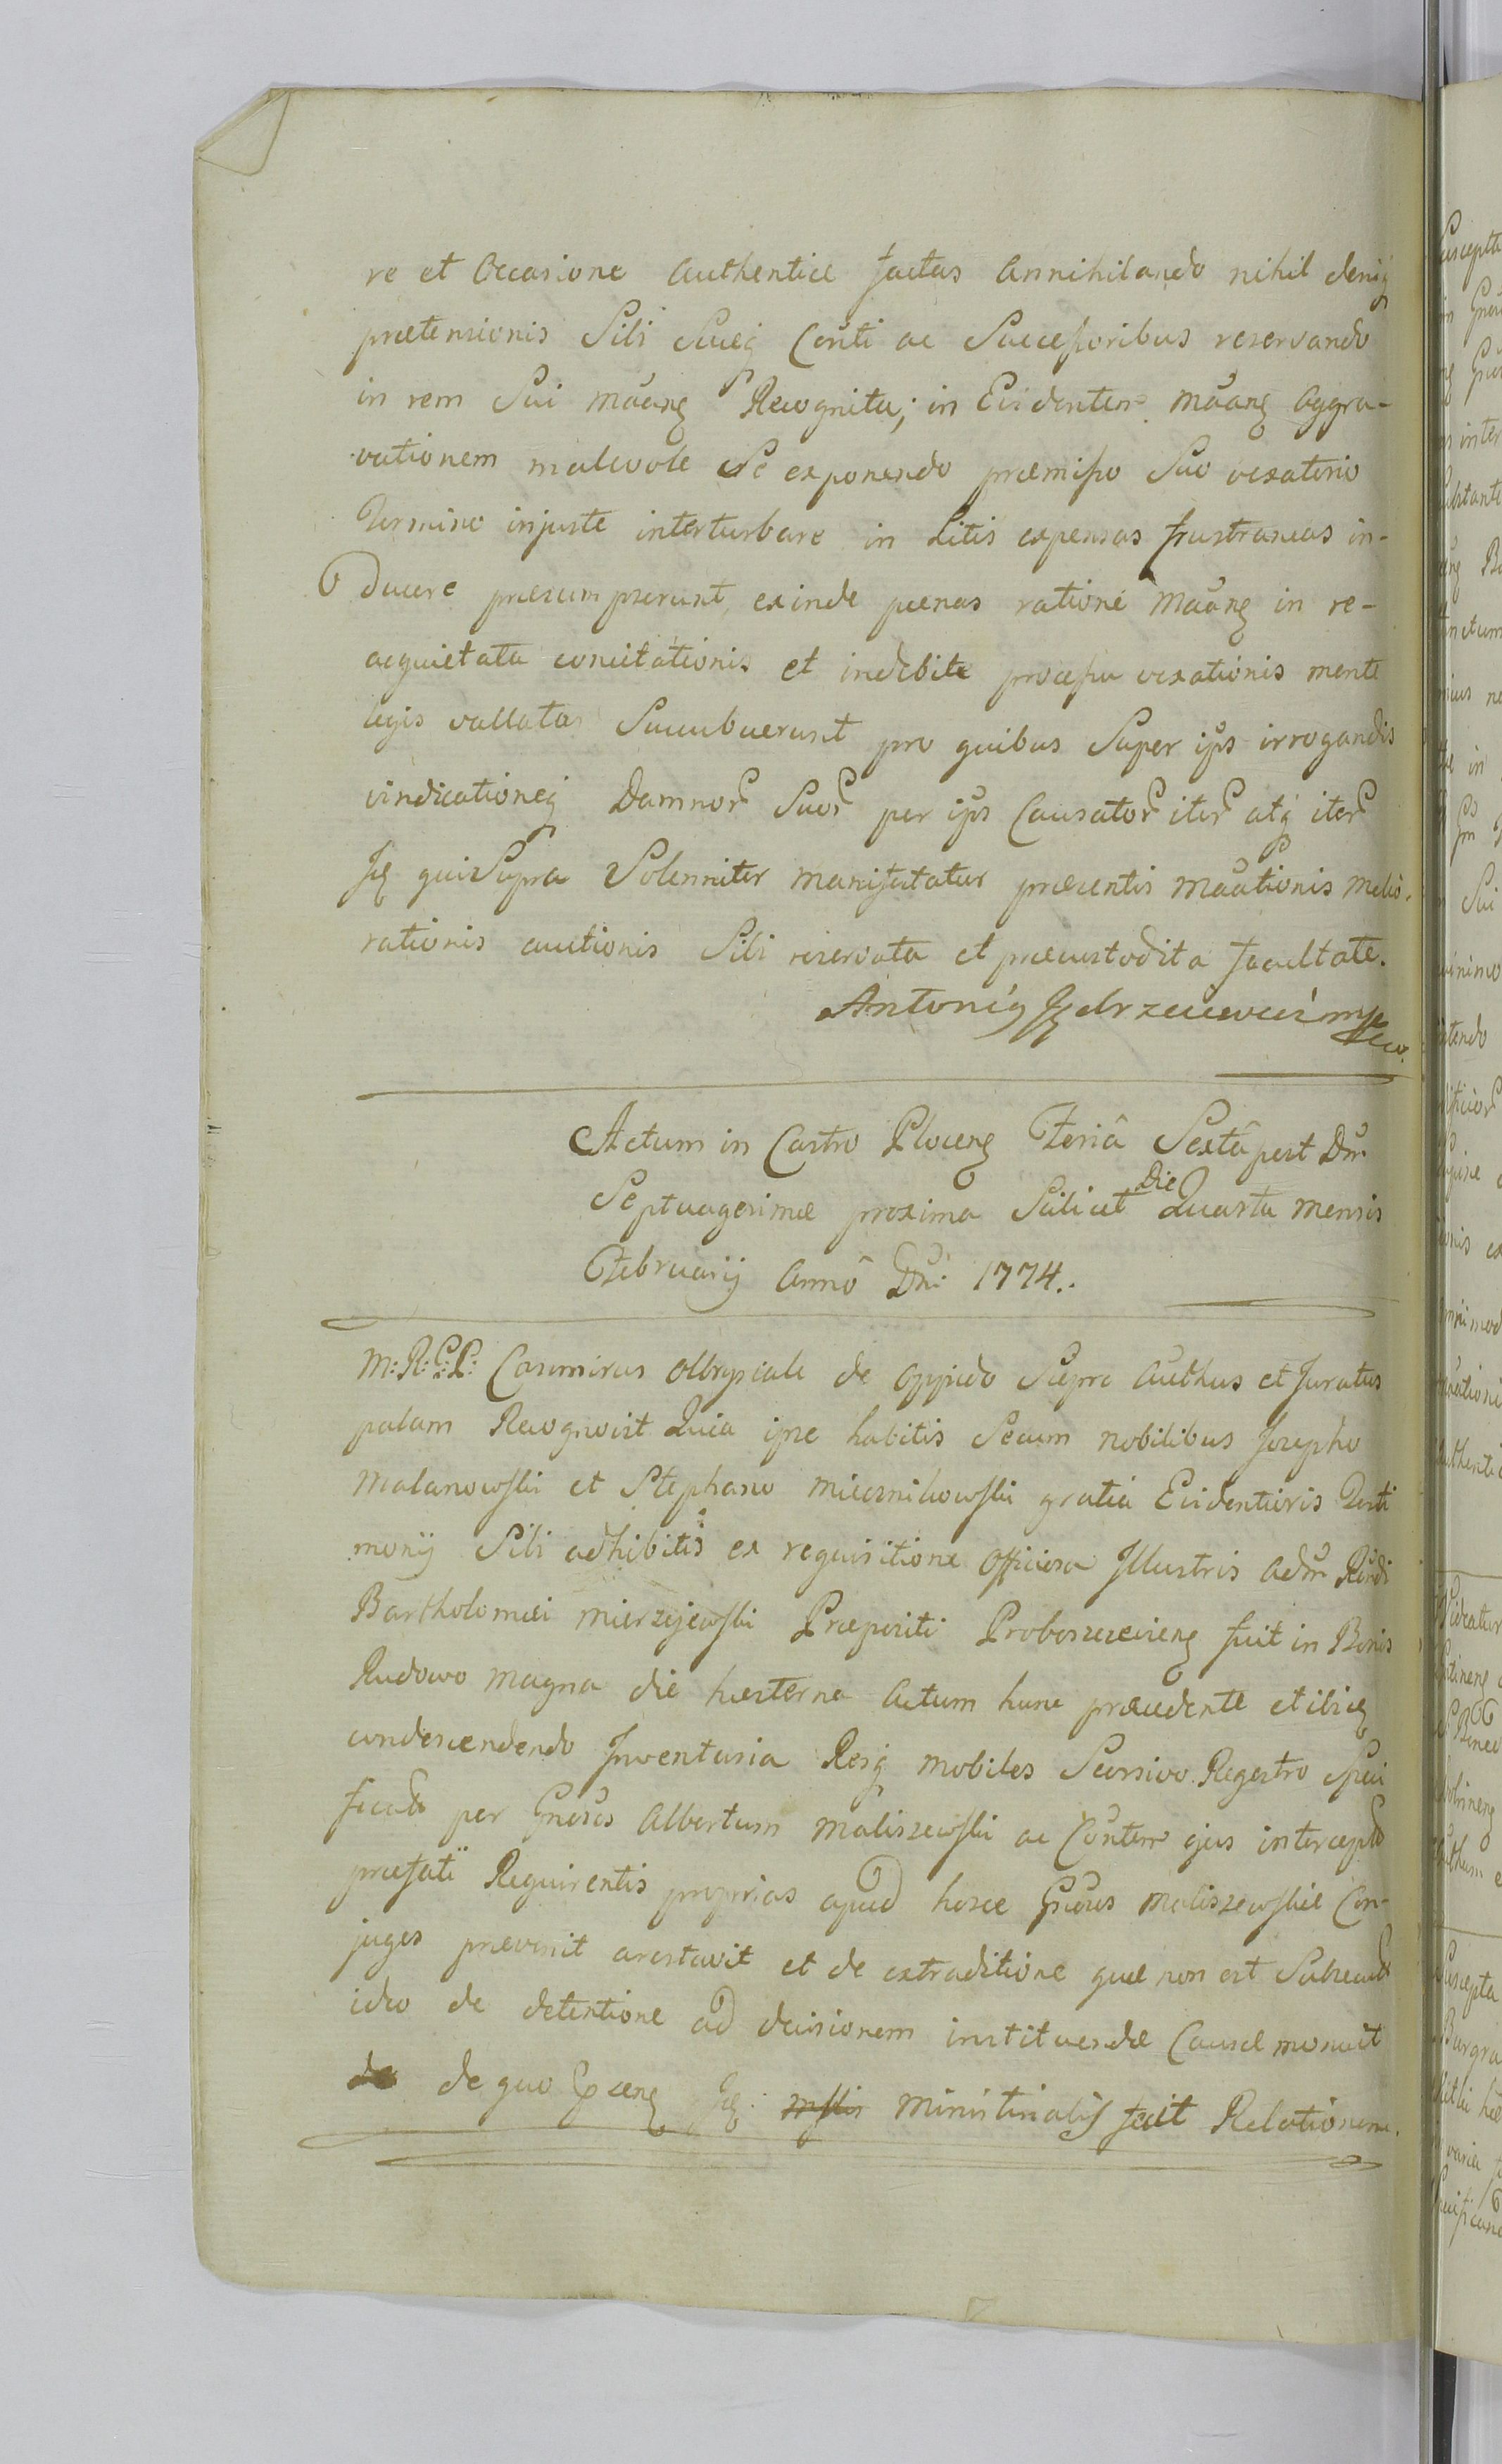 re et Occasione authentice factas annihilando nihil deniq
prætensionis Sibi Suisq Conti ac Successoribus reservando
in rem Sui maang Recognita; in Evidentem maang aggra-
vationem malevole Se exponendo præmisso Suo vexatorio
Termino injuste interturbare in Litis expensas frustraneas in-
ducere præsumpserunt, exinde pænas ratione maang in re-
acquietata concitationis et indebite processu vexationis mente
legis vallatas Succubuerunt pro quibus Super ips irrogandis
vindicationeq Damnor Suor per ips Causator iter atq iter
Iq qui Supra Solenniter manifestatur præsentis maationis melio-
rationis auctionis Sibi reservata et præcustodita facultate.
Antonig Jędrzeiewicz mp
Actum in Castro Ploceng Feriâ Sextâ post Dm
Septuagesimæ proxima Scilicet Die Quarta mensis
Februarij Annô Dni 1774.
M: R: G: P: Casimirus Olbrysiak de Oppido Sierpc Authus et Juratus
palam Recognovit Quia ipse habitis Secum nobilibus Josepho
Malanowski et Stephano Miecznikowski gratia Evidentioris Testi
monij Sibi adhibitis ex requisitione Officiosa Illustris adm Rndi
Bartholomæi Mierzejewski Præpositi Proboszczevieng fuit in Bonis
Rudowo magna die hesterna Actum hunc præcedente et ibiq
condescendendo Inventaria Resq mobiles Seorsivo Regestro Speci
ficatas per Gnosos Albertum Maliszewski ac Contem ejus interceptas
præfati Requirentis proprias apud hosce Gnosos Maliszewskie Con-
juges prævenit arestavit et de extraditione quæ non est Subsecuta
ideo de detentione ad decisionem instituendæ Causæ monuit
de quo præseng Iq: Ministerialis fecit Relationem.